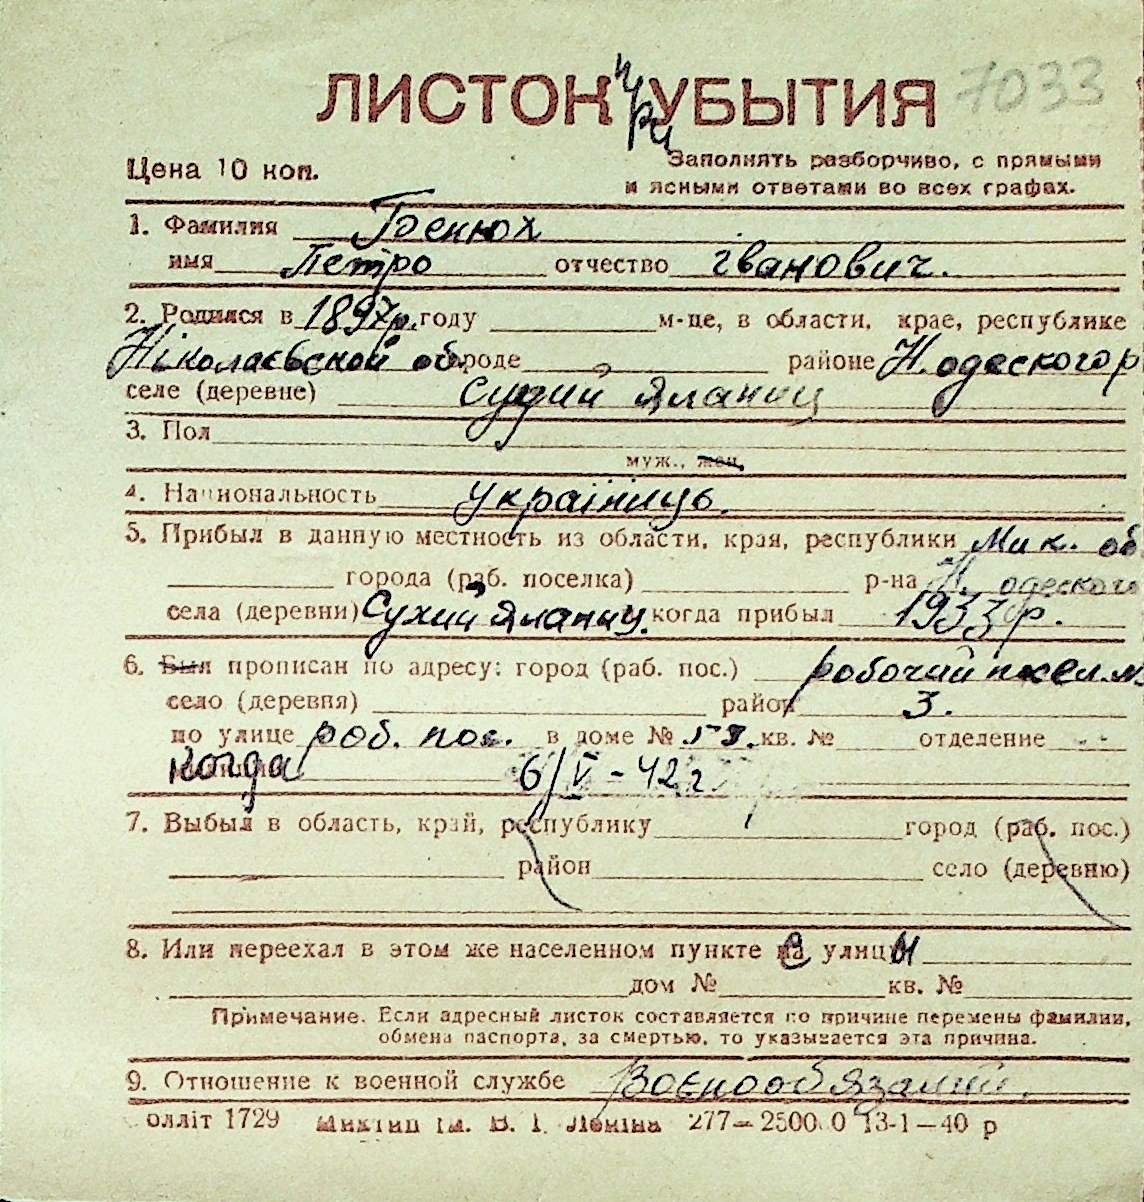 ЛИСТОК при УБЫТИЯ 7033
Цена 10 коп.
Заполнять разборчиво, с прямыми
и ясными ответами во всех графах.
1. Фамилия
имя Петро отчество Іванович.
2. Родился в 1897р. году м-це, в области, крае, республике
Ніколаєвской об. городе районе Н. одеского р
селе (деревне) Сухий Яланец
3. Пол
муж., жен.
4. Национальность українець.
5. Прибыл в данную местность из области, края, республики Мик. об
города (раб. поселка) р-на Н. одеского
села (деревни) Сухий Яланец. когда прибыл 1933 р.
6. Был прописан по адресу: город (раб. пос.) робочий посел.
село (деревня) район 3.
по улице роб. пос. в доме № кв. № отделение
Когда 6/V-42 г
7. Выбыл в область, край, республику город (раб. пос.)
район село (деревню)
8. Или переехал в этом же населенном пункте с улицы
дом № кв. №
Примечание. Если адресный листок составляется по причине перемены фамилии,
обмена паспорта, за смертью, то указывается эта причина.
9. Отношение к военной службе Воєнообязаний.
олліт 1729 ім. В. І. Леніна 277—2500 0 13-1—40 р